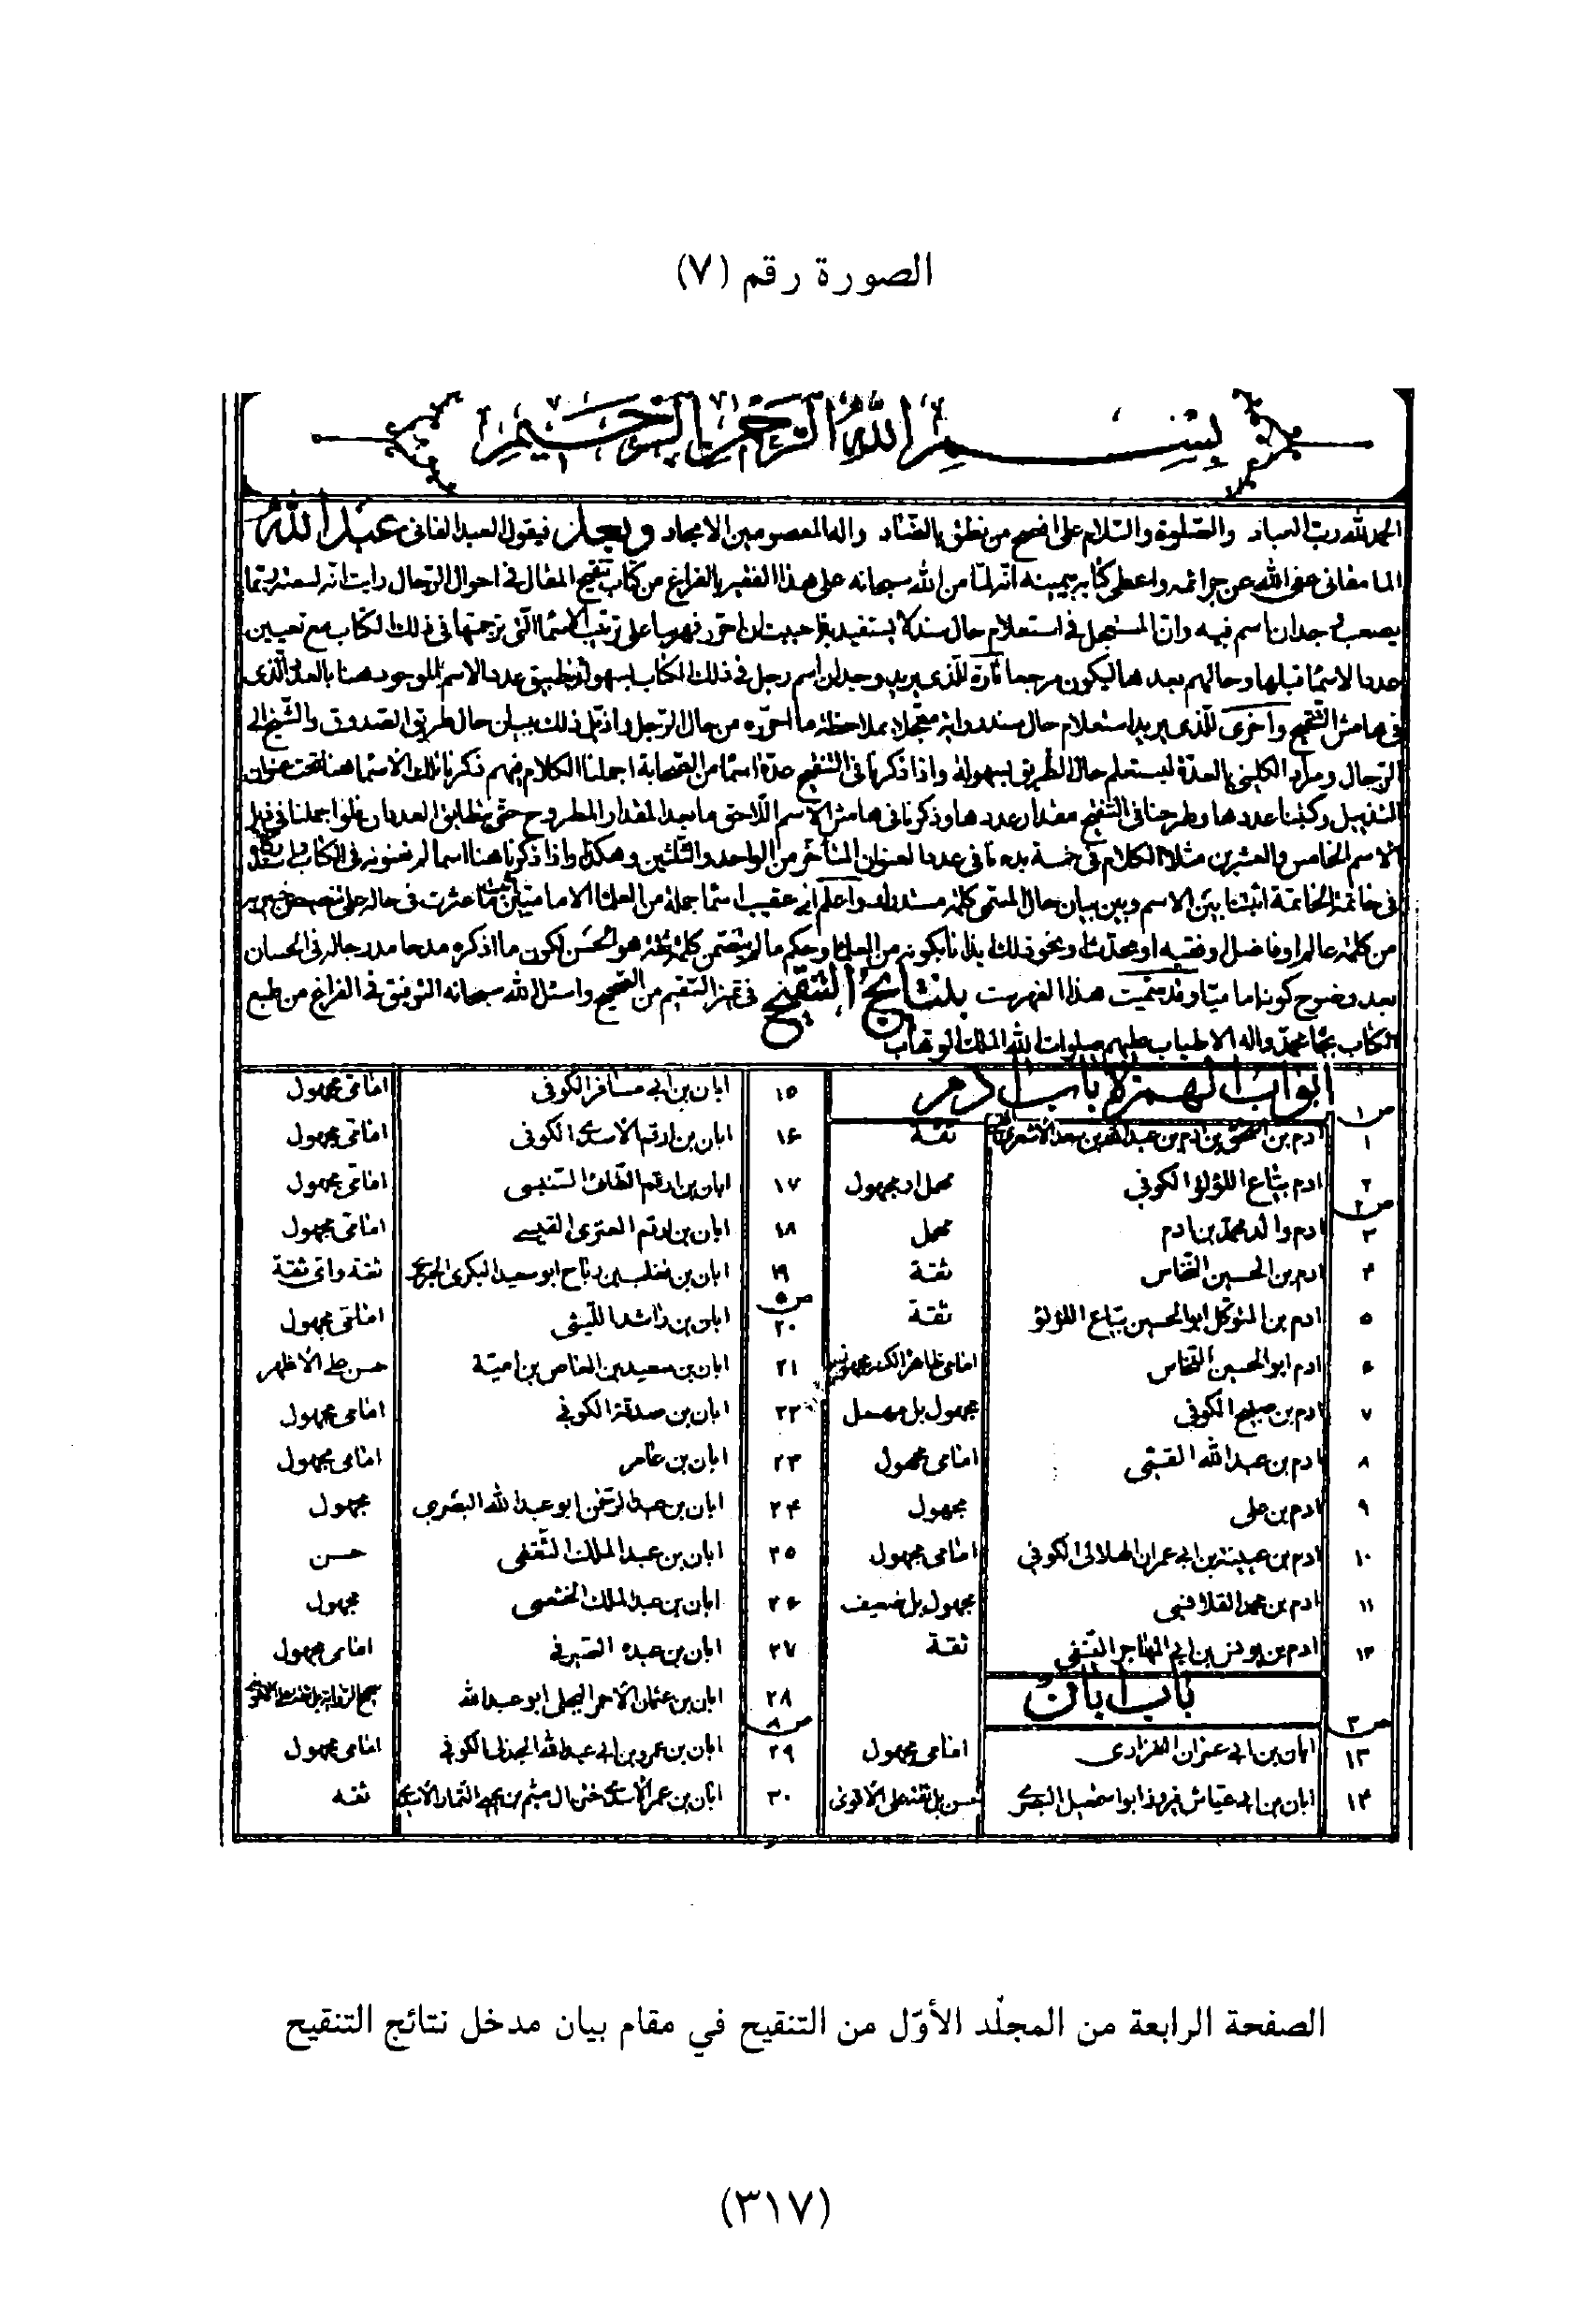 الصورة رقم (٧)
بسم الله الرحمن الرحيم
الحمد لله رب العباد والصلوة والسلام على افصح من نطق بالضاد واله المعصومين الامجاد وبعد فيقول العبد الفاني عبد الله
المامقاني عفى الله عن جرائمه واعطى كتابه بيمينه انه لما من الله سبحانه على هذا الفقير بالفراغ من كتاب تنقيح المقال في احوال الرجال رايت انه لسعته ربما
يصعب وجدان اسم فيه وان المستعجل في استعلام حال سند لا يستفيد فاحببت ان احرر فهرسا على ترتيب الاسماء التي ترجمتها في ذلك الكتاب مع تعيين
عدد الاسماء قبلها وحالهم بعدها ليكون مرجعا تارة للذي يريد وجدان اسم رجل في ذلك الكتاب بسهولة بتطبيق عدد الاسم الموجود هنا بالعدد الذي
في هامش التنقيح واخرى للذي يريد استعلام حال سند دوايه معجلا بملاحظة ما احرره من حال الرجل واذيل ذلك ببيان حال طريق الصدوق والشيخ الى
الرجال ومراد الكليني بالعدة ليستعلم حال الطريق بسهولة واذا ذكرنا في التنقيح عدة اسماء من الصحابة اجملنا الكلام فيهم ذكرنا تلك الاسماء هنا تحت عنوان
التذييل وكتبنا عددها وطرحنا في التنقيح مقدار عددها وذكرنا في هامش الاسم اللاحق ما بعد المقدار المطروح حتى يتطابق العددان فلو اجملنا في ذيل
الاسم الخامس والعشرين مثلا الكلام في خمسة بدءنا في عدد العنوان المتأخر من الواحد والثلثين وهكذا واذا ذكرنا هنا اسما لم نعنونه في الكتاب
في خاتمة الخاتمة اثبتنا بين الاسم وبين بيان حال المسمى كلمة مستدرك واعلم اني عقيب اسماء جملة من العلماء الاماميين
من كلمة عالم او فاضل او فقيه او محدث او نحو ذلك من العلماء وحكم ما لم يتضمن كلمة ثقة هو الحسن لكون ما اذكره مدحا مدرجا له في الحسان
بعد وضوح كونه اماميا وقد سميت هذا الفهرست بنتائج التنقيح في تميز السقيم من الصحيح واسئل الله سبحانه التوفيق في الفراغ من طبع
الكتاب بجاه محمد واله الاطياب عليهم صلوات الله الملك الوهاب
ابواب الهمزة باب ادم
ص ١
١ ادم بن اسحق بن ادم بن عبد الله بن سعد الاشعري ثقة
٢ ادم بياع اللؤلؤ الكوفي مهمل او مجهول
ص ٢
٣ ادم والد محمد بن ادم مهمل
٤ ادم بن الحسين النخاس ثقة
٥ ادم بن المتوكل ابو الحسين بياع اللؤلؤ ثقة
٦ ادم ابو الحسين النخاس
٧ ادم بن صبيح الكوفي مجهول بل مهمل
٨ ادم بن عبد الله القمي امامي مجهول
٩ ادم بن علي مجهول
١٠ ادم بن عيينة بن ابي عمران الهلالي الكوفي امامي مجهول
١١ ادم بن محمد القلانسي مجهول بل ضعيف
١٢ ادم بن يونس بن ابي المهاجر النسفي ثقة
باب ابان
ص ٣
١٣ ابان بن ابي عمران الفزاري امامي مجهول
١٤ ابان بن ابي عياش فيروز ابو اسمعيل البصري حسن بل ثقة على الاقوى
١٥ ابان بن ابي مسافر الكوفي امامي مجهول
١٦ ابان بن ارقم الاسدي الكوفي امامي مجهول
١٧ ابان بن ارقم الطائي السنبسي امامي مجهول
١٨ ابان بن ارقم العنزي القيسي امامي مجهول
١٩ ابان بن تغلب بن رباح ابو سعيد البكري الجريري ثقة واي ثقة
ص ٥
٢٠ ابان بن راشد الليثي امامي مجهول
٢١ ابان بن سعيد بن العاص بن امية حسن على الاظهر
٢٢ ابان بن صدقة الكوفي امامي مجهول
٢٣ ابان بن عامر امامي مجهول
٢٤ ابان بن عبد الرحمن ابو عبد الله البصري مجهول
٢٥ ابان بن عبد الملك الثقفي حسن
٢٦ ابان بن عبد الملك الخثعمي مجهول
٢٧ ابان بن عبده الصيرفي امامي مجهول
٢٨ ابان بن عثمان الاحمر البجلي ابو عبد الله
ص ٨
٢٩ ابان بن عمرو بن ابي عبد الله الجدلي الكوفي امامي مجهول
٣٠ ابان بن عمر الاسدي ختن ال ميثم بن يحيى التمار الاسدي ثقه
الصفحة الرابعة من المجلّد الأوّل من التنقيح في مقام بيان مدخل نتائج التنقيح
(٣١٧)